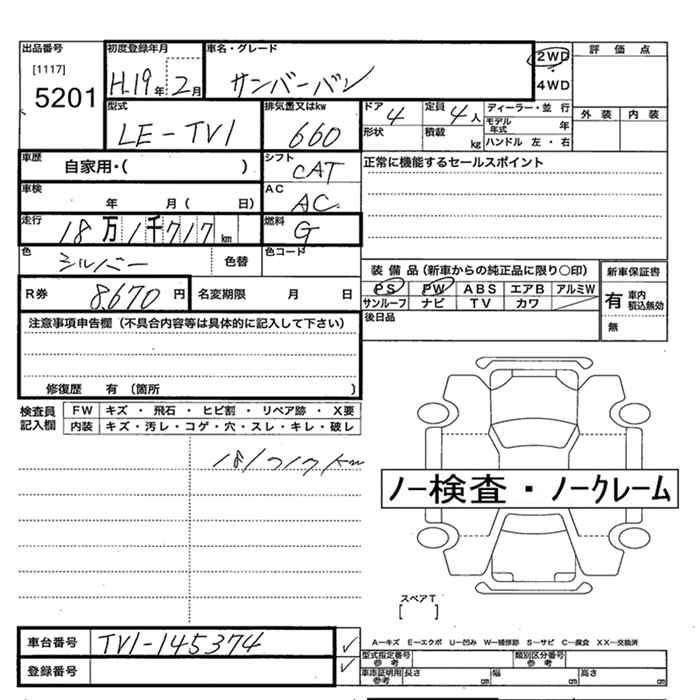 出品番号
[1117]
5201
初度登録年月
H.19年2月
車名・グレード
サンバーバン
2WD
・
4WD
評価点
外装 内装
型式
LE-TV1
排気量又はkw
660
ドア 4
形状
定員 4人
積載 kg
ディーラー・並行
モデル年式 年
ハンドル 左・右
車歴
自家用・( )
シフト
CAT
車検
年 月( 日)
AC
AC
走行
18万1千717km
燃料
G
色
シルバー
色替
色コード
R券 8,670円
名変期限 月 日
正常に機能するセールスポイント
装備品(新車からの純正品に限り○印)
PS PW ABS エアB アルミW
サンルーフ ナビ TV カワ
後日品
新車保証書
有 車内積込無効
無
注意事項申告欄(不具合内容等は具体的に記入して下さい)
修復歴 有(箇所 )
検査員記入欄
FW キズ・飛石・ヒビ割・リペア跡・X要
内装 キズ・汚レ・コゲ・穴・スレ・キレ・破レ
181717km
ノー検査・ノークレーム
スペアT
[ ]
車台番号 TV1-145374 ✓
登録番号 ✓
A−キズ E−エクボ U−凹み W−補修跡 S−サビ C−腐食 XX−交換済
型式指定番号 参考
類別区分番号 参考
車庫証明用 参考
長さ cm 幅 cm 高さ cm